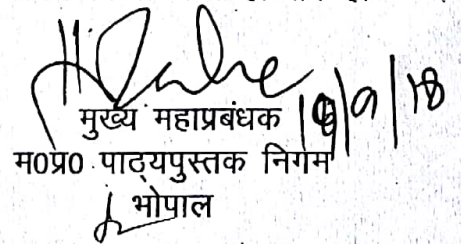 मुख्य महाप्रबंधक
म0प्र0 पाठ्यपुस्तक निगम
भोपाल